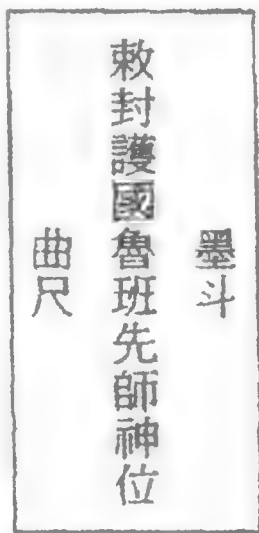 墨斗
敕封護國魯班先師神位
曲尺